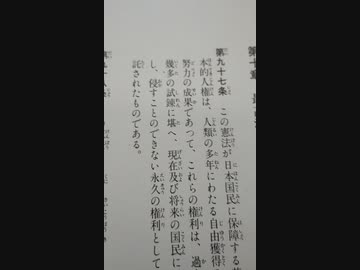 第十章 最
第九十七条 この憲法が日本国民に保障する基
本的人権は、人類の多年にわたる自由獲得
努力の成果であつて、これらの権利は、過
幾多の試錬に堪へ、現在及び将来の国民に
し、侵すことのできない永久の権利として
託されたものである。
第九十八条